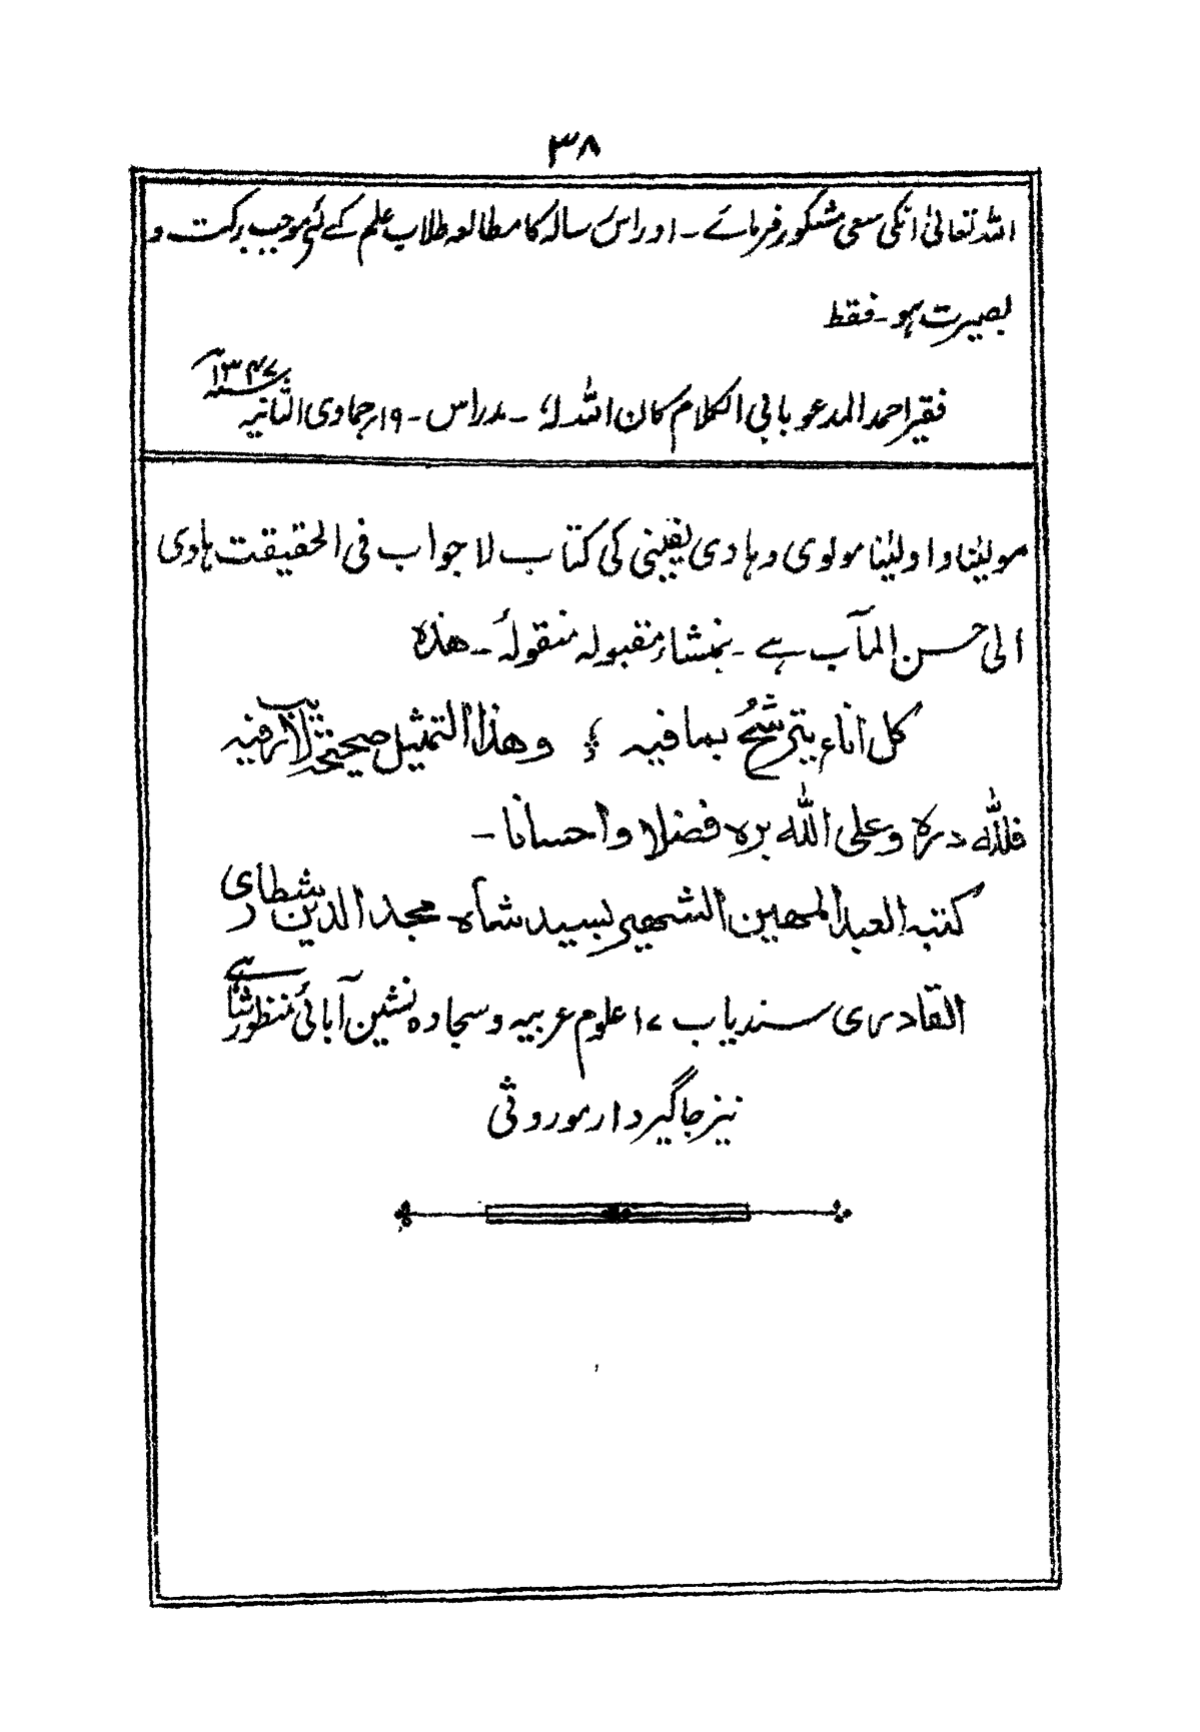 ۳۸
اللہ تعالیٰ انکی سعی مشکور فرمائے۔ اور اس رسالہ کا مطالعہ طلاب علم کے لئے موجب برکت و
بصیرت ہو۔ فقط
فقیر احمد المدعو بابی الکلام کان اللہ لہٗ۔ مدراس۔ ۱۹؍ جمادی الثانیہ ۱۳۴۷ھ
مولیٰنا و اولیٰنا مولوی و ہادی یقینی کی کتاب لا جواب فی الحقیقت ہادی
الیٰ حسن المآب ہے۔ بمنشاء مقبولہ منقولہٗ۔ ھذہ
کل اناء یترشحُ بما فیہ ؛ وھذا التمثیل صحیحٌ لاریب فیہ
فللّٰہ درہ وعلی اللّٰہ برہ فضلا واحسانا۔
کتبہ العبد المھین الشھیر بسید شاہ محمد الدین شطاری
القادری سند یاب ۱۷ علوم عربیہ و سجادہ نشین آبائی
نیز جاگیردار موروثی